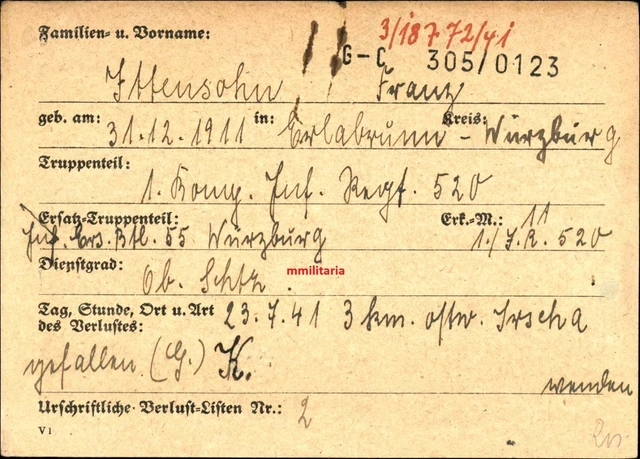 Familien- u. Vorname: 3/18772/41
G-C 305/0123
Ittensohn Franz
geb. am: 31.12.1911 in: Erlabrunn - Kreis: Würzburg
Truppenteil:
1. Komp. Inf. Regt. 520
Ersatz-Truppenteil: Erk.-M.: 11
Inf. Ers. Btl. 55 Würzburg 1./J.R. 520
Dienstgrad: Ob. Schtz.
mmilitaria
Tag, Stunde, Ort u. Art 23.7.41 3 km. ostw. Irscha
des Verlustes:
gefallen (G.) K.
wenden
Urschriftliche Verlust-Listen Nr.: 2
V 1